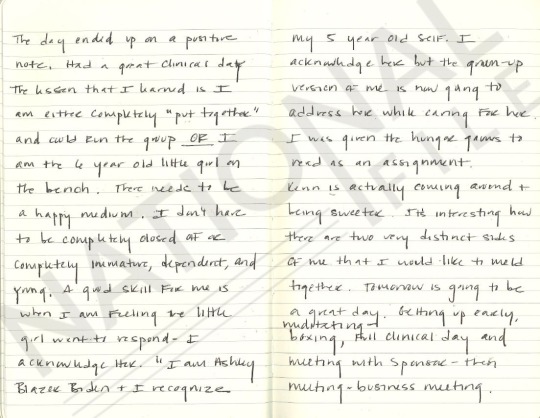 The day ended up on a positive
note. Had a great clinical day
The lesson that I learned is I
am either completely "put together"
and could run the group OR I
am the 6 year old little girl on
the bench. There needs to be
a happy medium. I don't have
to be completely closed off or
completely immature, dependent, and
young. A good skill for me is
when I am feeling the little
girl want to respond - I
acknowledge her. "I am Ashley
Blazer Biden + I recognize
my 5 year old self. I
acknowledge her but the grown-up
version of me is now going to
address her while caring for her.
I was given the hunger games to
read as an assignment.
is actually coming around +
being sweeter. Its interesting how
there are two very distinct sides
of me that I would like to meld
together. Tomorrow is going to be
a great day. Getting up early,
meditating -
boxing, full clinical day and
meeting with sponsor - then
meeting - business meeting.
NATIONAL
FILE